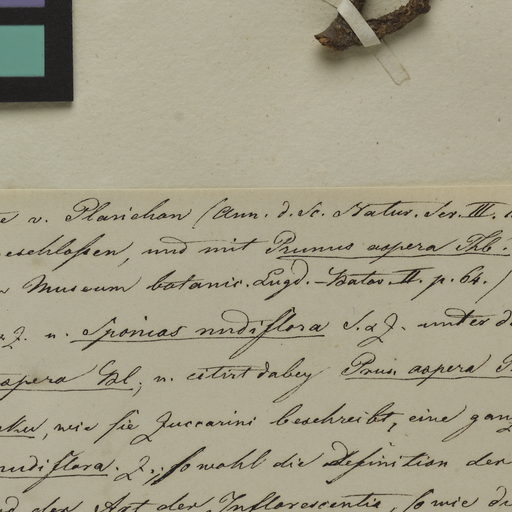 v. Planichon (Ann. d. Sc. Natur. Ser. III.
eschlossen, und mit Prunus aspera Thb.
Museum botanic. Lugd.-Batav. II. p. 64.)
Z. u. Sponias nudiflora S. & Z. unter d
aspera Bl.; u. citirt dabey Prun. aspera
, wie sie Zuccarini beschreibt, eine gan
nudiflora. Z.; sowohl die Definition der
der Art der Inflorescentia, sowie di